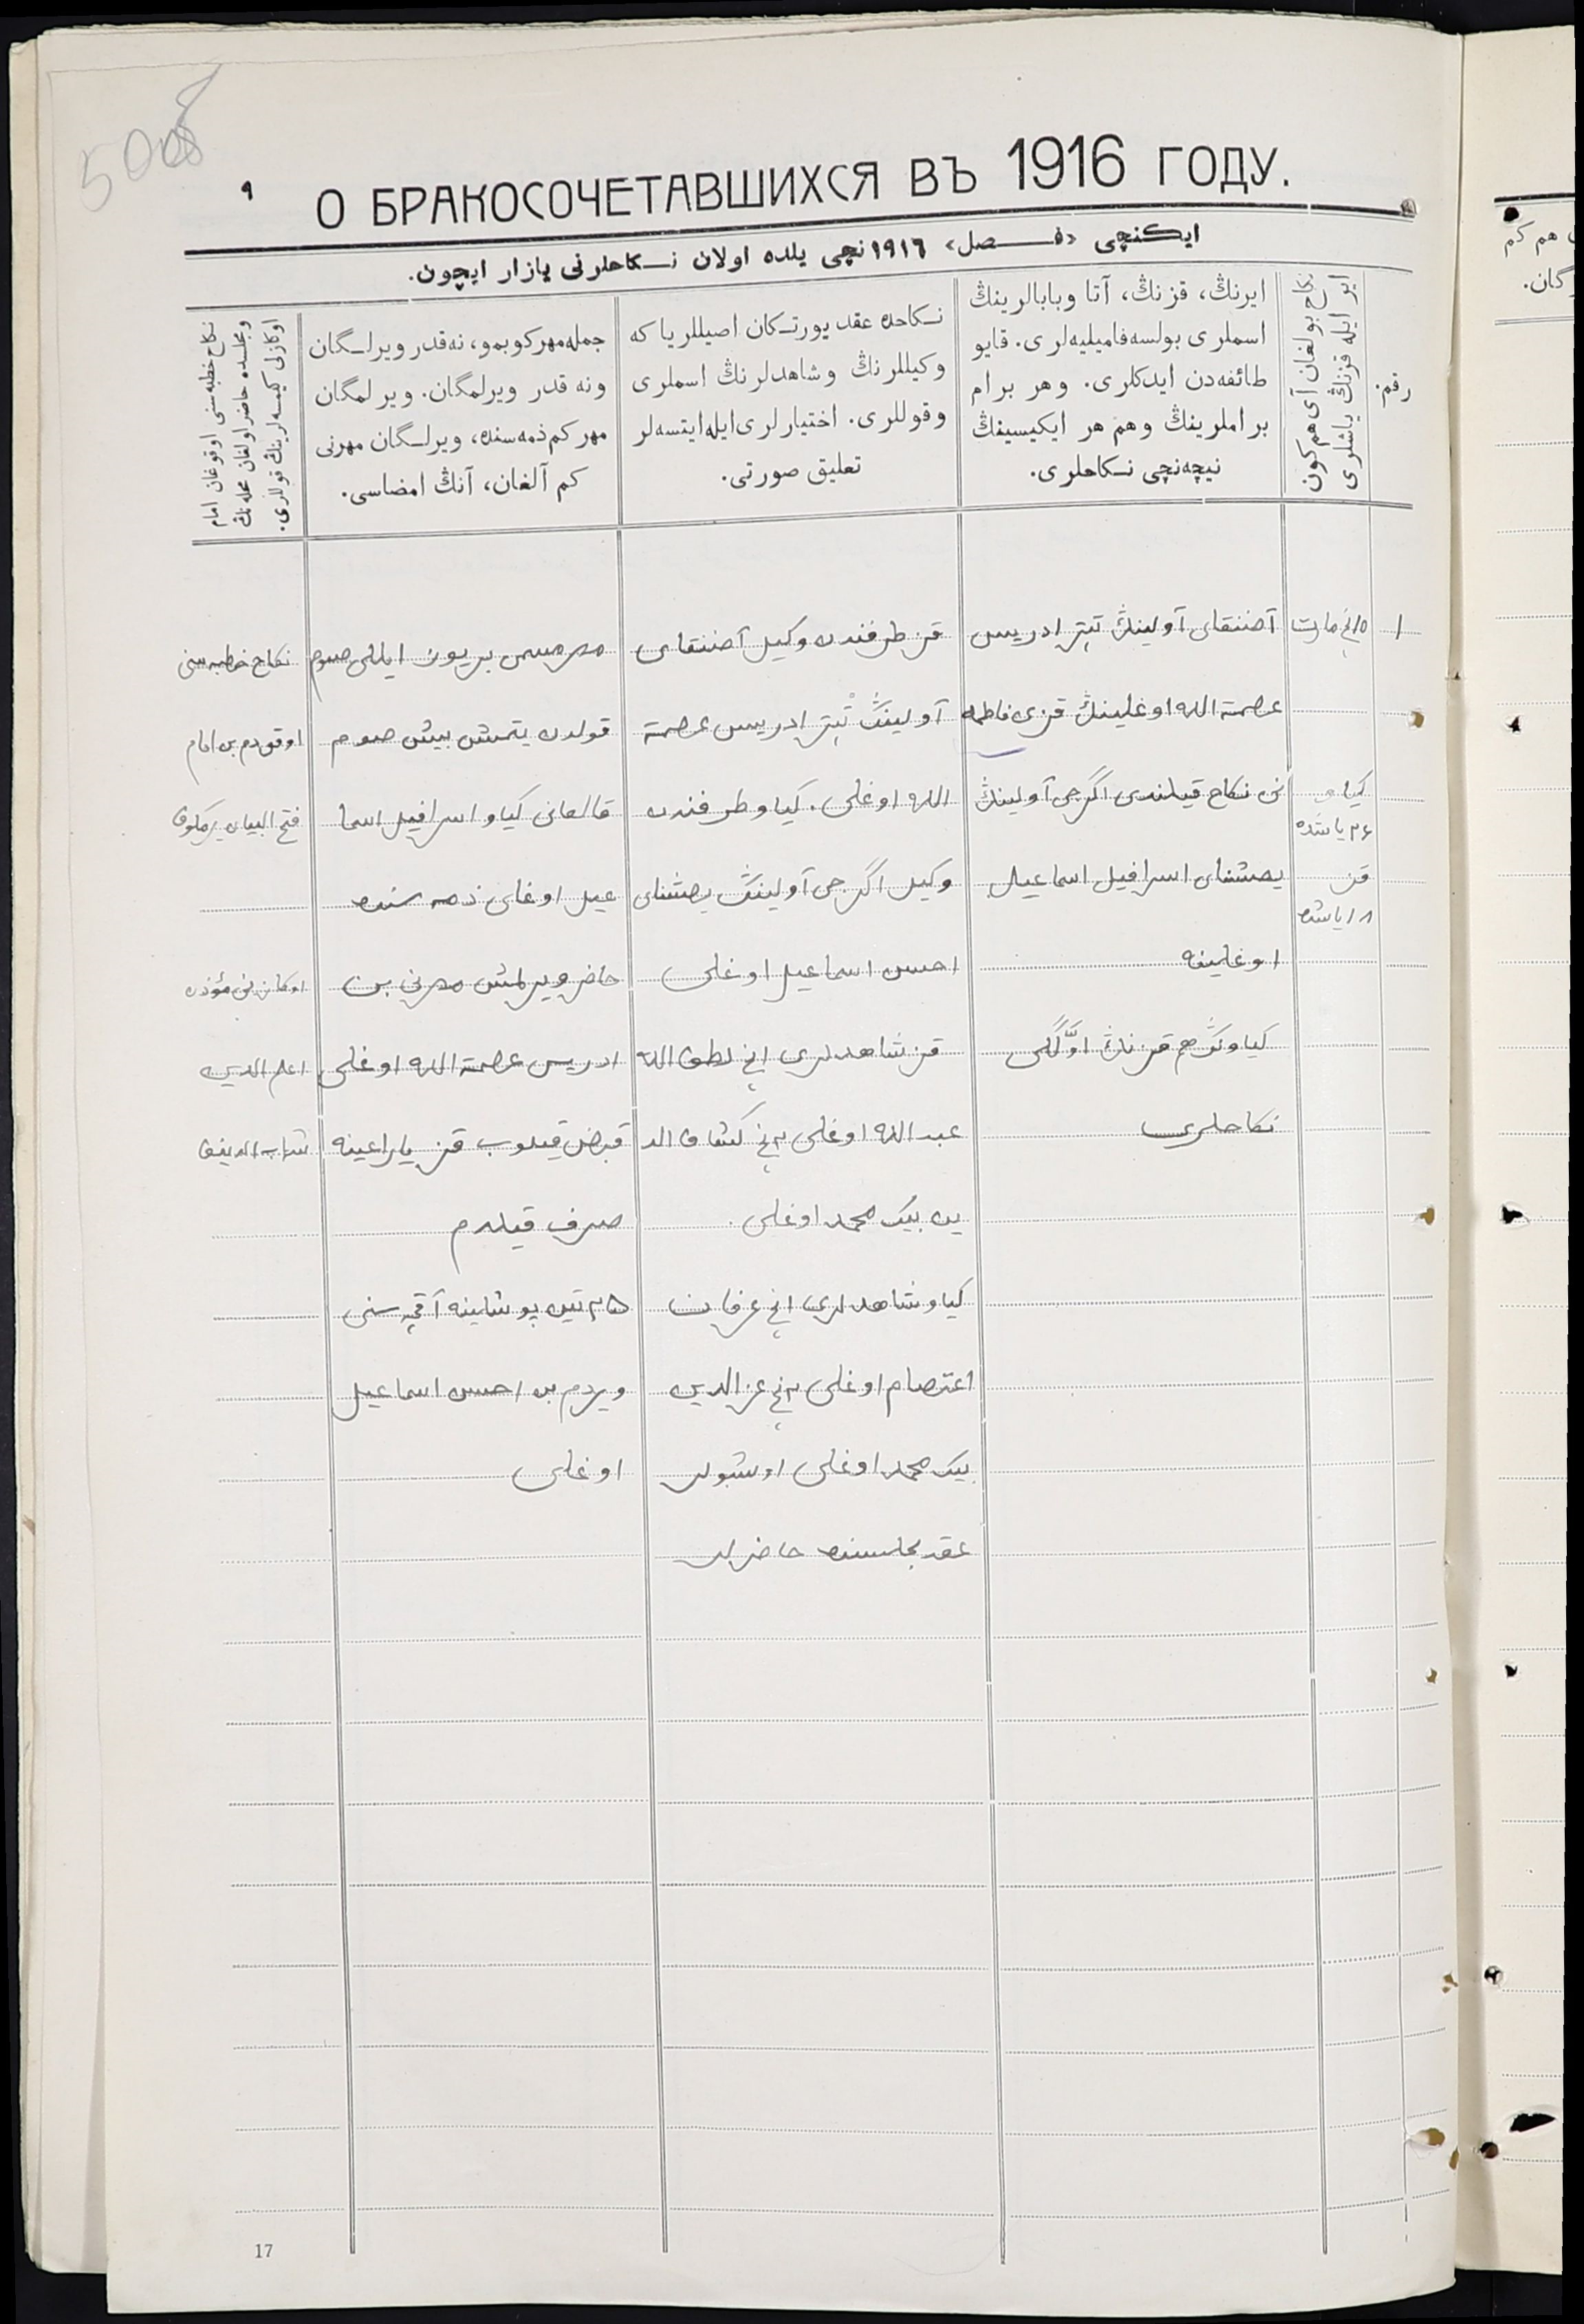 5008
٩
О БРАКОСОЧЕТАВШИХСЯ ВЪ 1916 ГОДУ.
ایکنچی «فـــصل» ١٩١٦نچی یلده اولان نـکاحلرنی یازار ایچون.
رقم:
نکاح بولغان آی هم کون
ایر ایله قزنڭ یاشلری
ایرنڭ، قزنڭ، آتا وبابالرینڭ
اسملری بولسه‌فامیلیه‌لری. قایو
طائفه‌دن ایدکلری. وهر برام
براملرینڭ وهم هر ایکیسینڭ
نیچه‌نچی نـکاحلری.
نـکاحده عقد یورتـکان اصیللر یا که
وکیللرنڭ وشاهدلرنڭ اسملری
وقوللری. اختیارلری‌ایله‌ایتسه‌لر
تعلیق صورتی.
جمله‌مهرکوبمو، نه‌قدر ویرلـگان
ونه قدر ویرلمگان. ویرلمگان
مهرکم‌ذمه‌سنده، ویرلـگان مهرنی
کم آلغان، آنڭ امضاسی.
نـکاح خطبه‌سنی اوقوغان امام
ومجلسده حاضر اولغان محله‌نڭ
اوکازلی کیمسه‌لرینڭ قوللری.
١
١٥نچی مارت
کیاو
٢٤ یاشده
قز
١٨ یاشده
آصنقای آولینڭ تیپتر ادریس
عصمة الله اوغلینڭ قزی فاطمه
نی نکاح قیلندی اگرجی آولینڭ
یصشنای اسرافیل اسماعیل
اوغلینه
کیاونڭ هم قزنڭ اوّلگی
نکاحلری
قز طرفندن وکیل آصنقای
آولینڭ تیپتر ادریس عصمة
الله اوغلی. کیاو طرفندن
وکیل اگرجی آولینڭ یصشنای
احسن اسماعیل اوغلی
قز شاهدلری ١نچی لطف الله
عبد الله اوغلی ٢نچی کشاف الد
ین بیک محمد اوغلی.
کیاو شاهدلری ١نچی عرفان
اعتصام اوغلی ٢نچی عز الدین
بیک محمد اوغلی اوشبولر
عقد مجلسنده حاضرلر
مهرمسمی بریوز ایللی صوم
قولدن یتمش بیش صوم
قالغانی کیاو اسرافیل اسما
عیل اوغلی ذمه سنده
حاضر ویرلمش مهرنی بن
ادریس عصمة الله اوغلی
قبض قیلوب قز یاراعینه
صرف قیلدم
٢٥ تین پوشلینه آقچه سنی
ویردم بن احسن اسماعیل
اوغلی
نکاح خطبه سنی
اوقودم بن امام
فتح البیان
اوکازنی مؤذن
اعلم الدین